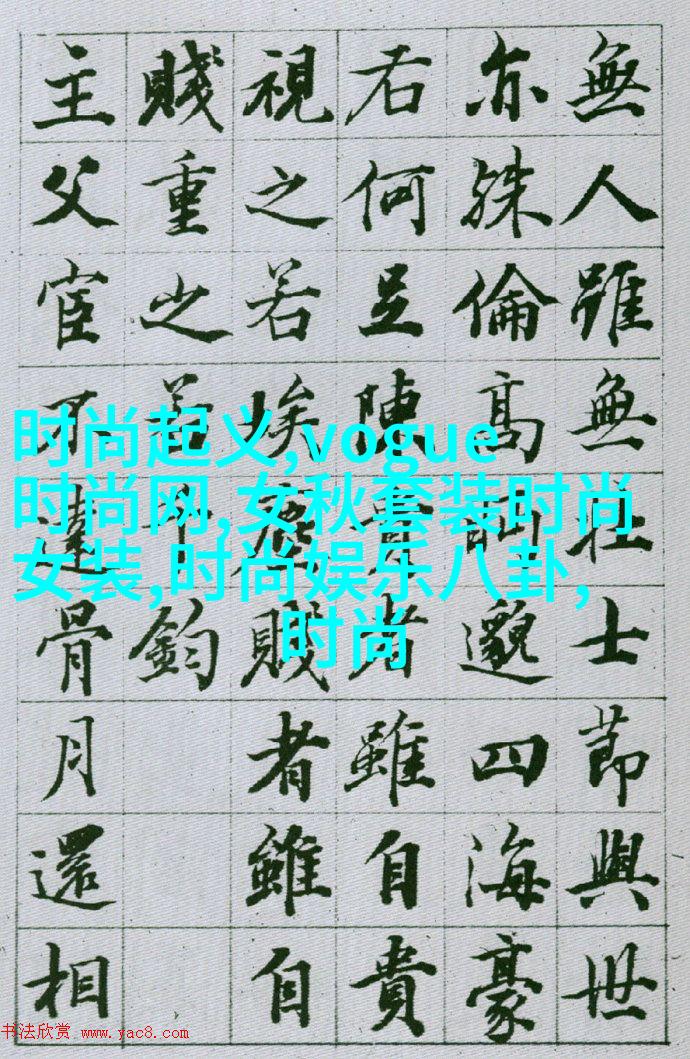 無人雖無壯士節與世
亦殊倫高眄邈四海豪
右何足陳貴者雖自貴
視之若埃塵賤者雖自
賤重之若千鈞
主父宦不達骨月還相
时尚起义,vogue
时尚网,女秋套装时尚
女装,时尚娱乐八卦,
时尚
书法欣赏 www.yac8.com